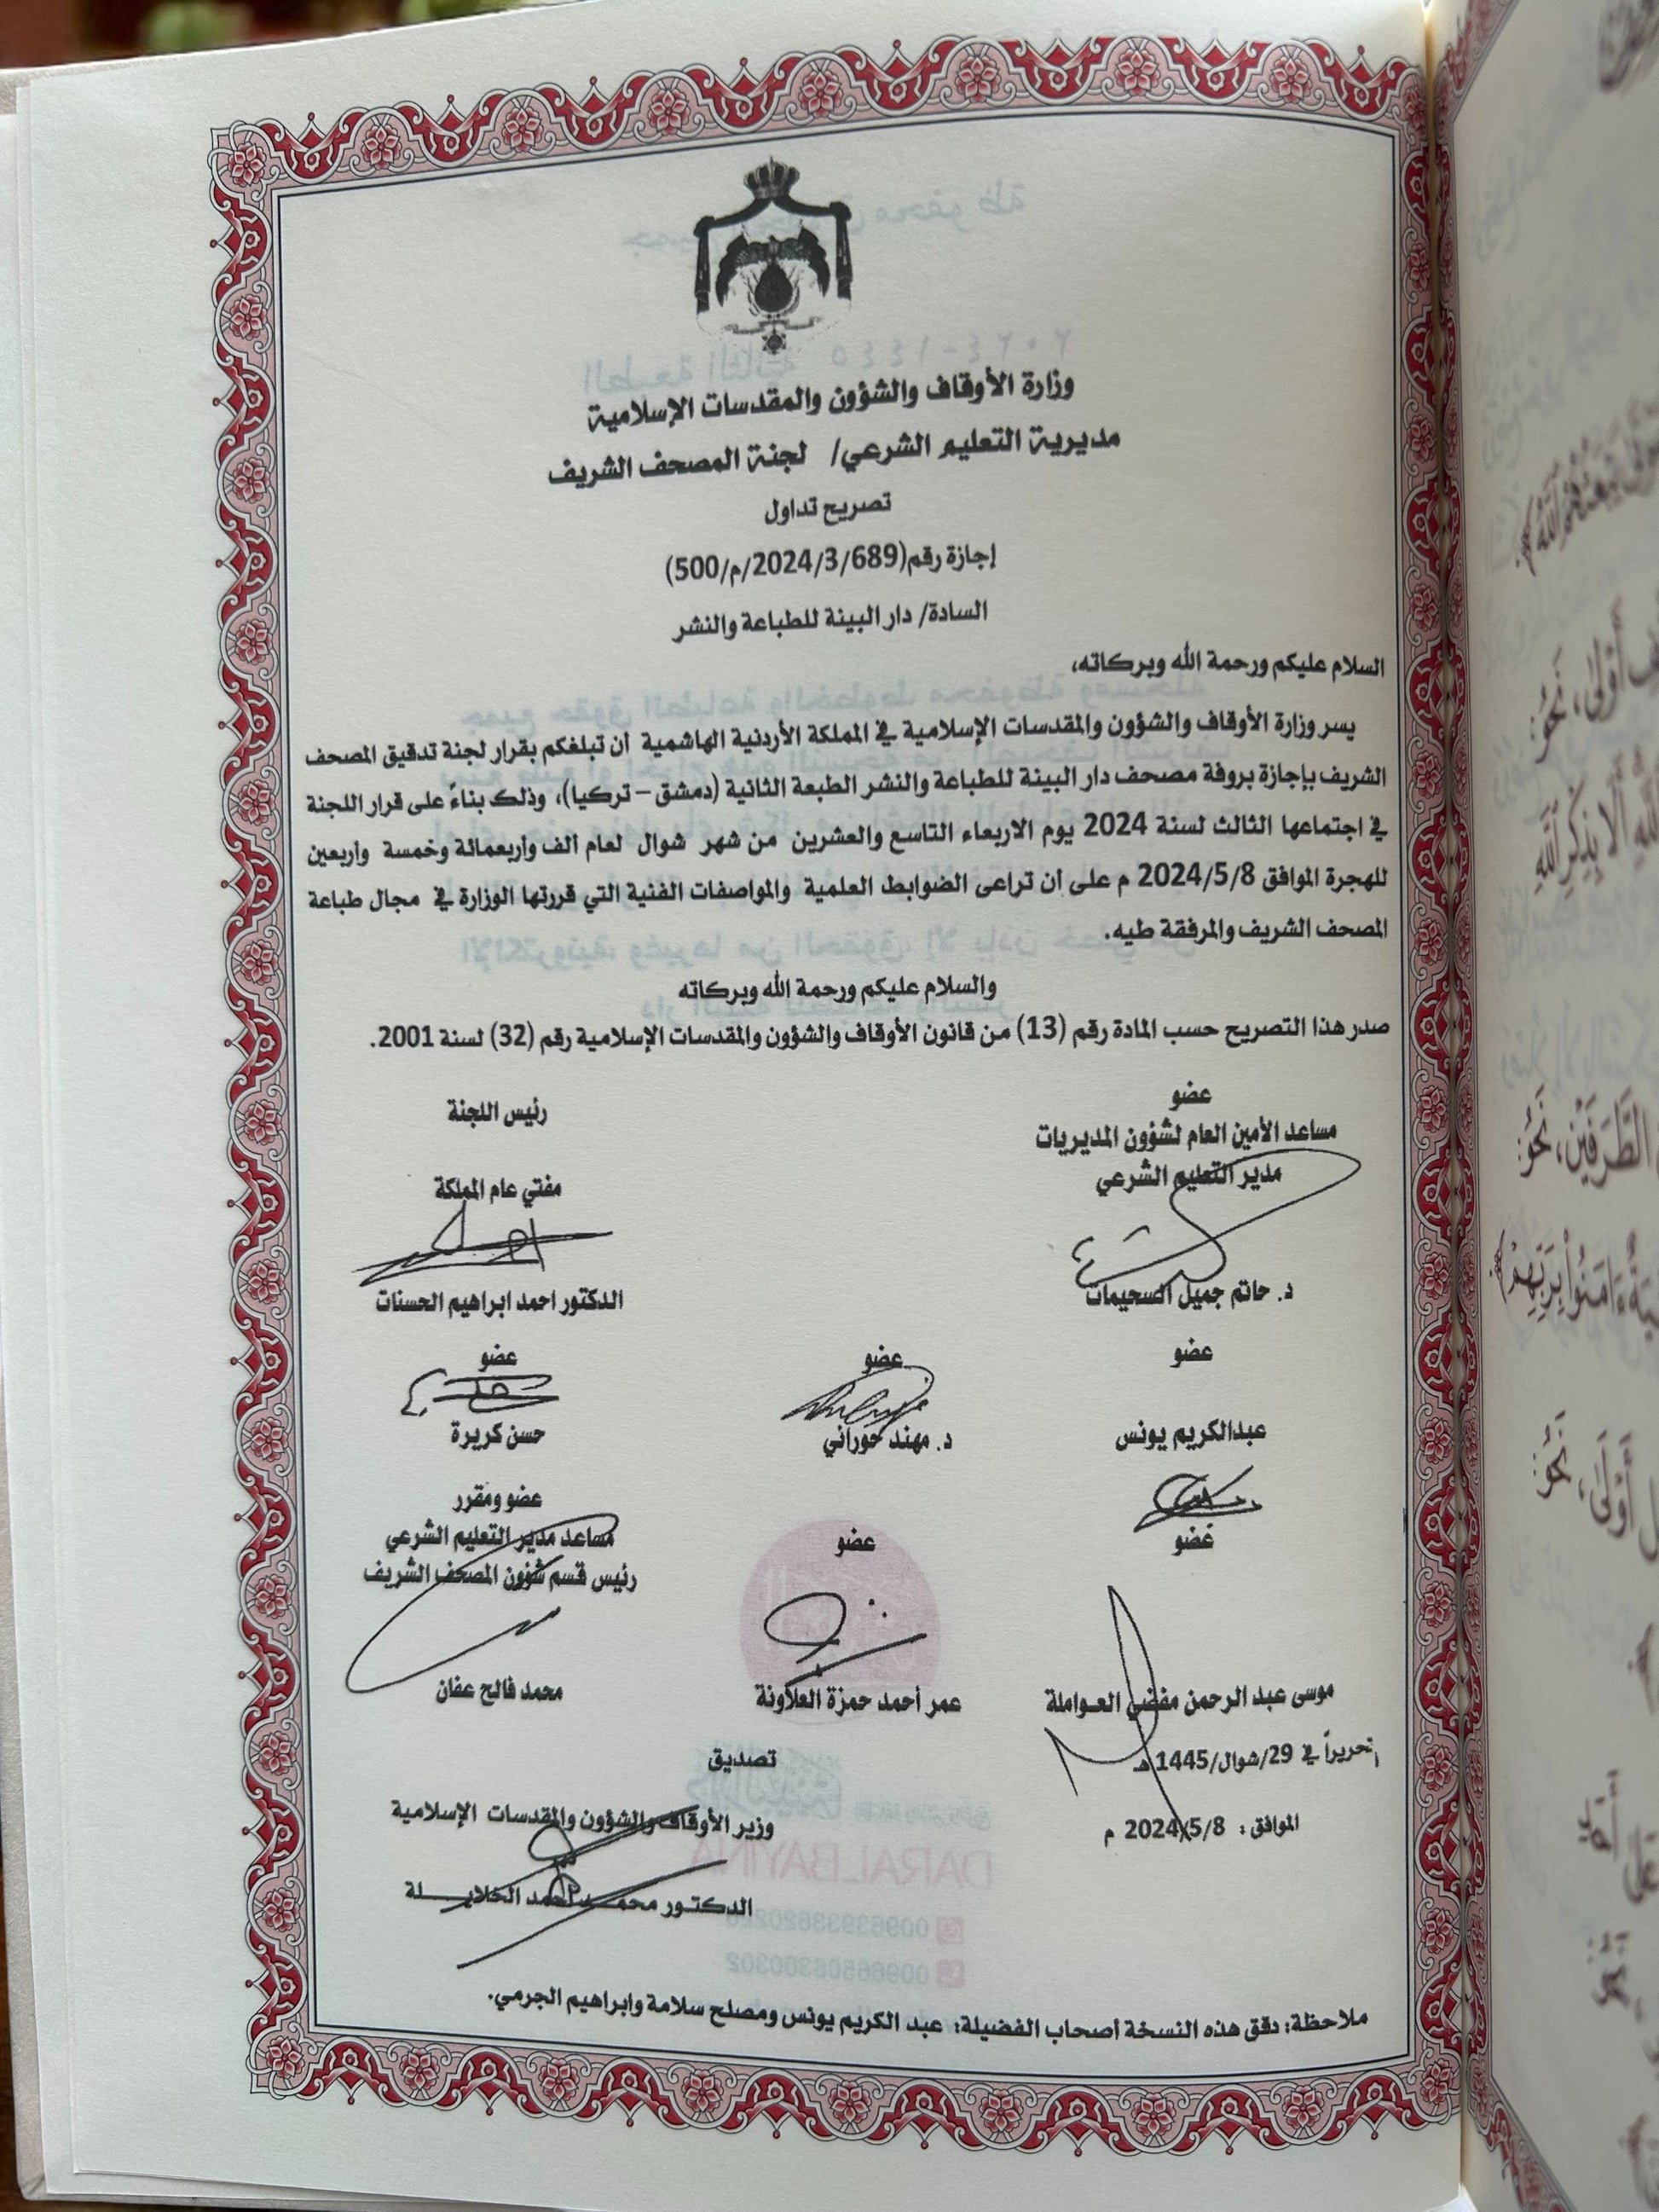 وزارة الأوقاف والشؤون والمقدسات الإسلامية
مديرية التعليم الشرعي/ لجنة المصحف الشريف
تصريح تداول
إجازة رقم(2024/3/689/م/500)
السادة/ دار البينة للطباعة والنشر
السلام عليكم ورحمة الله وبركاته،
يسر وزارة الأوقاف والشؤون والمقدسات الإسلامية في المملكة الأردنية الهاشمية أن تبلغكم بقرار لجنة تدقيق المصحف
الشريف بإجازة بروفة مصحف دار البينة للطباعة والنشر الطبعة الثانية (دمشق – تركيا)، وذلك بناءً على قرار اللجنة
في اجتماعها الثالث لسنة 2024 يوم الاربعاء التاسع والعشرين من شهر شوال لعام ألف وأربعمائة وخمسة وأربعين
للهجرة الموافق 2024/5/8 م على أن تراعى الضوابط العلمية والمواصفات الفنية التي قررتها الوزارة في مجال طباعة
المصحف الشريف والمرفقة طيه.
والسلام عليكم ورحمة الله وبركاته
صدر هذا التصريح حسب المادة رقم (13) من قانون الأوقاف والشؤون والمقدسات الإسلامية رقم (32) لسنة 2001.
عضو
مساعد الأمين العام لشؤون المديريات
مدير التعليم الشرعي
د. حاتم جميل السحيمات
رئيس اللجنة
مفتي عام المملكة
الدكتور احمد ابراهيم الحسنات
عضو
عبدالكريم يونس
عضو
د. مهند حوراني
عضو
حسن كريرة
عضو
موسى عبد الرحمن مفضي العواملة
عضو
عمر أحمد حمزة العلاونة
عضو ومقرر
مساعد مدير التعليم الشرعي
رئيس قسم شؤون المصحف الشريف
محمد فالح عفان
تحريراً في 29/شوال/1445 هـ
الموافق : 2024/5/8 م
تصديق
وزير الأوقاف والشؤون والمقدسات الإسلامية
الدكتـور محمـــد أحمد الخلايـــلة
ملاحظة: دقق هذه النسخة أصحاب الفضيلة: عبد الكريم يونس ومصلح سلامة وابراهيم الجرمي.